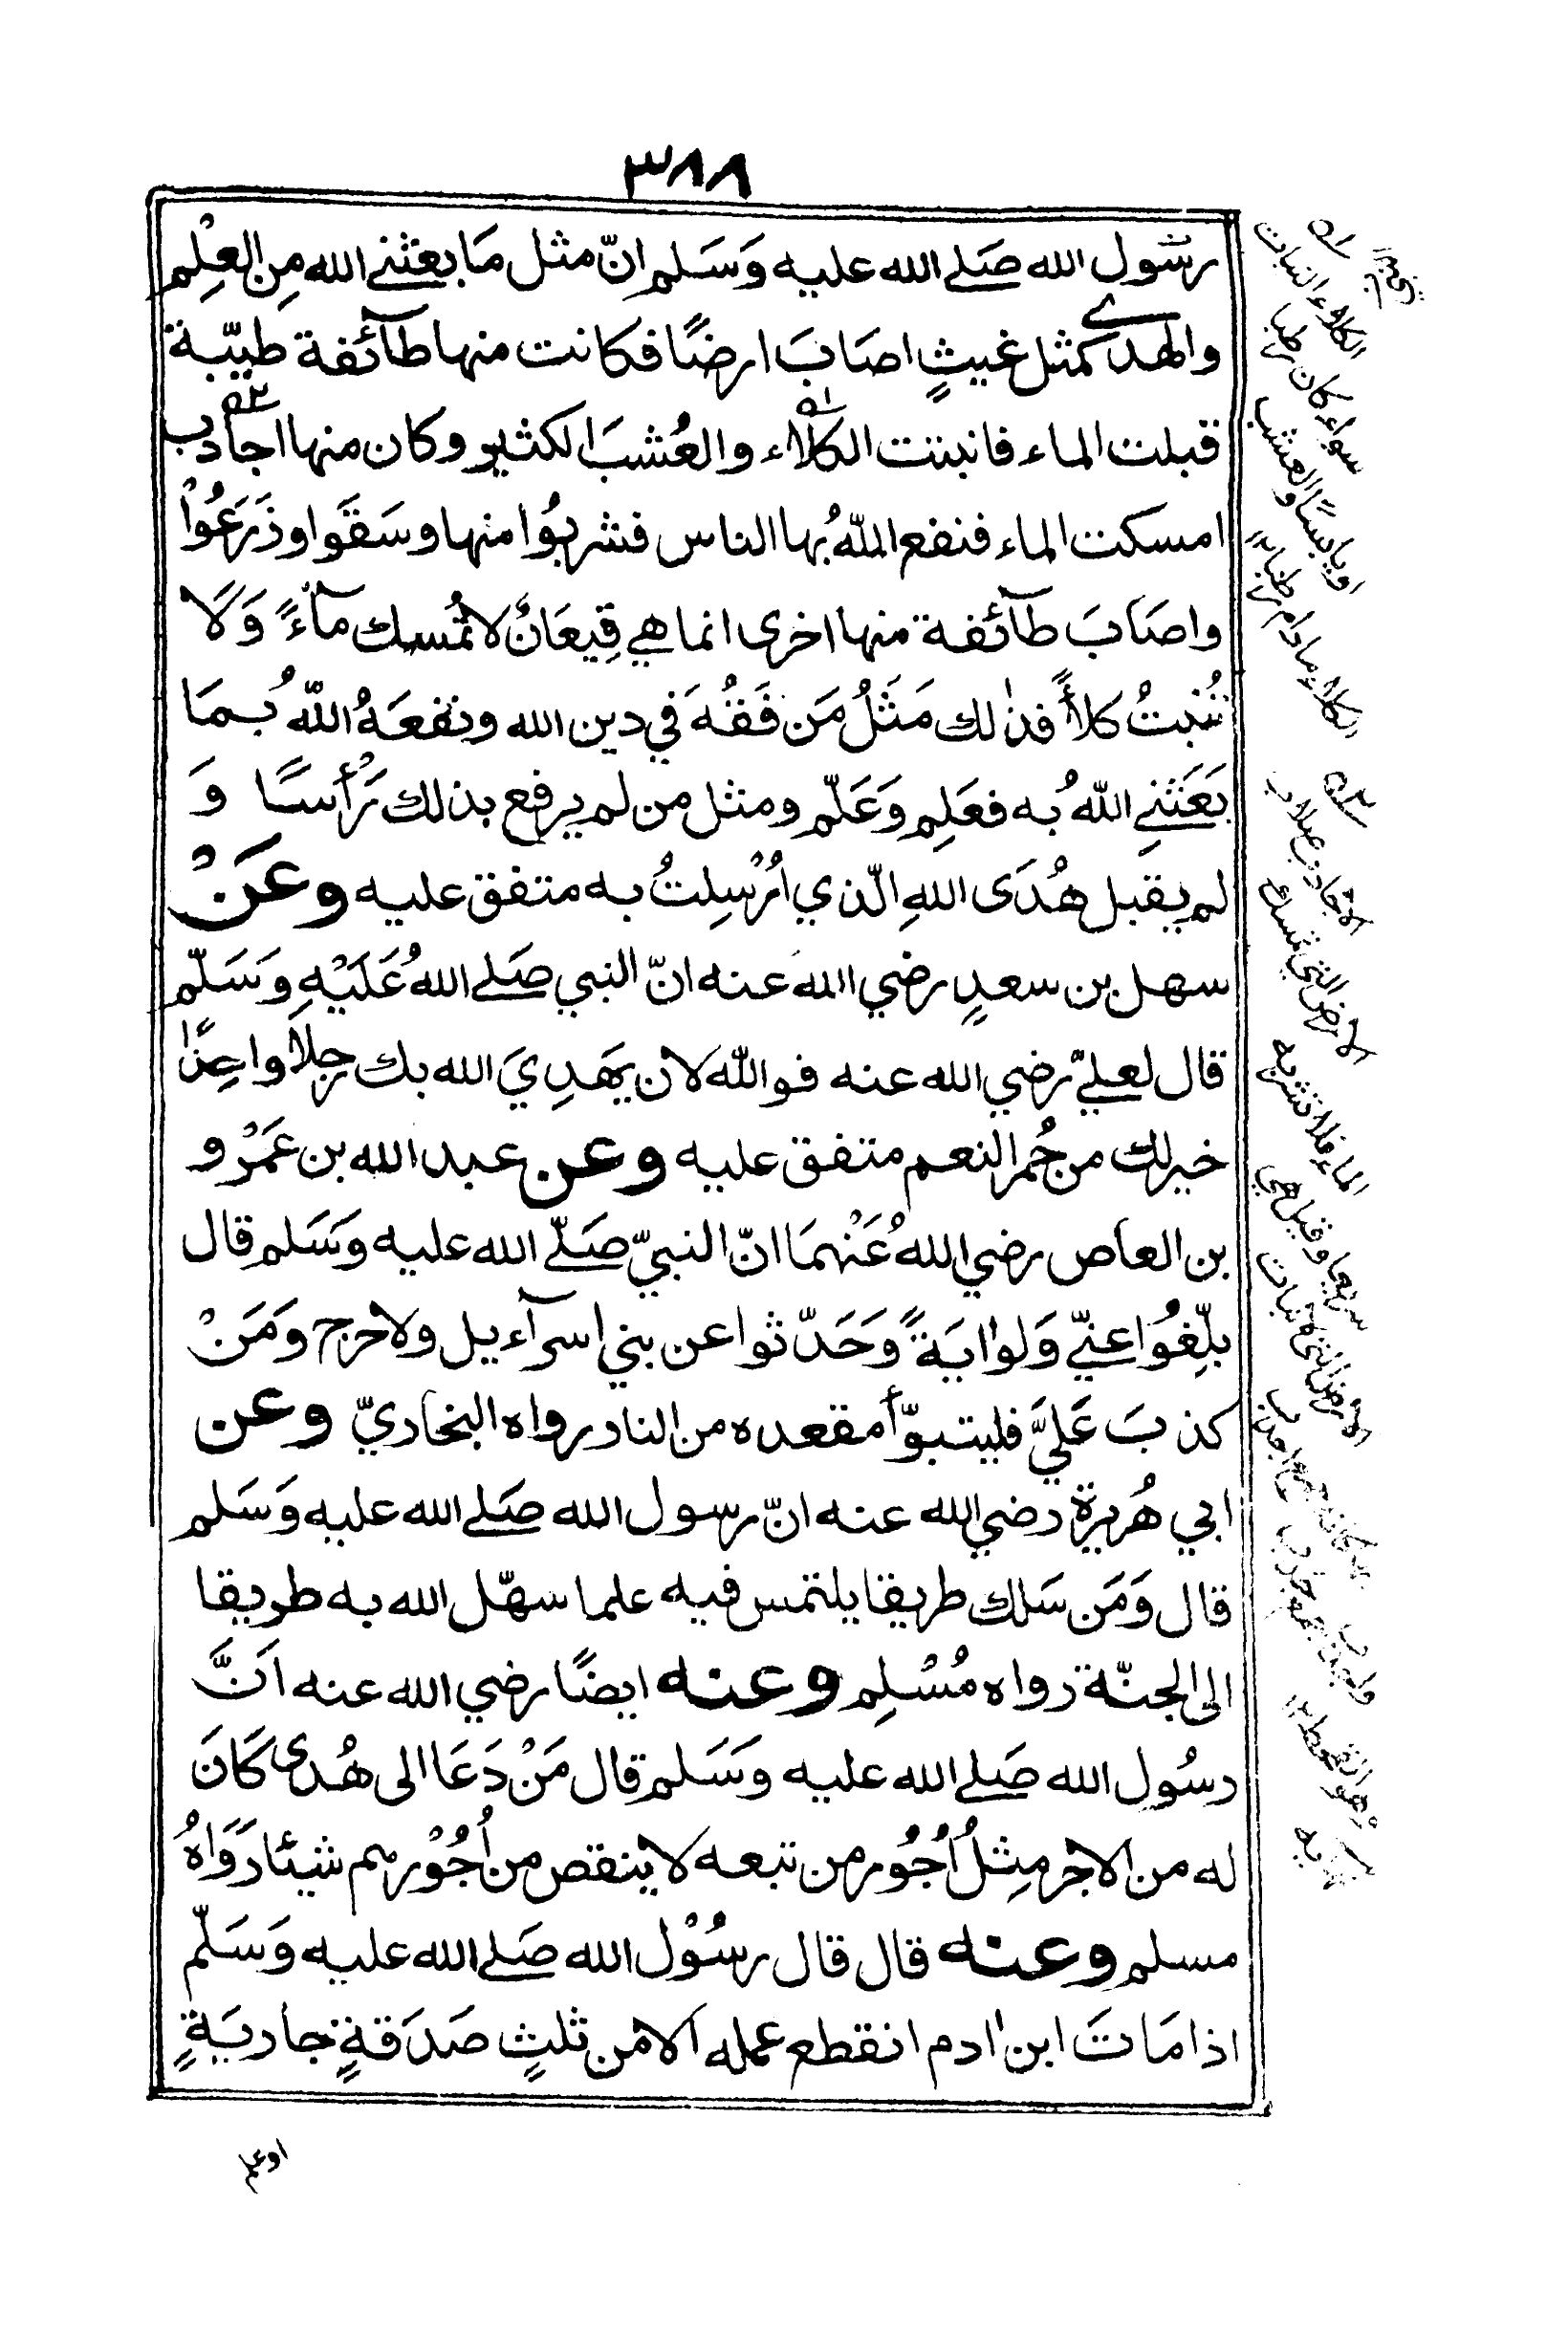 ٣٨٨
رسُول الله صَلى الله عليه وَسَلم انّ مثل مَا بعَثنى الله مِن العِلْم
والهدى كمثل غيثٍ اصَابَ ارضًا فكانت منها طآئفة طيّبة
قبلت الماء فانبتت الكلاء والعُشبَ الكثير وكان منها اجادب
امسكت الماء فنفع اللهُ بها الناس فشربُوا منها وسَقَوا وزَرَعُوْا
واصَابَ طآئفة منها اخرى انما هي قِيعَانٌ لا تُمسك مآءً وَلَا
تُنبتُ كلأً فذٰلك مَثَلُ مَن فَقُهَ في دين الله ونفعَهُ اللهُ بمَا
بَعَثَنِي اللهُ به فعَلِم وَعَلّم ومثل من لم يرفع بذلك رَأْسًا وَ
لم يقبل هُدَى اللهِ الّذي اُرْسِلتُ به متفق عليه وعَنْ
سهل بن سعدٍ رضي اللهَ عنه انّ النبي صَلى اللهُ عَلَيْهِ وَسَلّم
قال لعليّ رضي الله عنه فوالله لان يهَدِيَ الله بك رجلًا واحدًا
خير لك من حُمر النعم متفق عليه وعن عبد الله بن عَمْرو
بن العاص رضي اللهُ عَنْهمَا انّ النبيّ صَلّى الله عليه وَسَلم قال
بلّغُوا عنّي وَلو اٰيَةً وَحَدّثوا عن بني اسرآءيل ولا حرج وَمَنْ
كذبَ عَلَيَّ فليتبوّأ مقعده من النار رواه البخاريّ وعن
ابي هُريرة رضي الله عنه انّ رسول الله صَلى الله عليه وَسَلم
قال وَمَن سَلك طريقا يلتمس فيه علما سهّل الله به طريقا
الى الجنّة رواه مُسْلِم وعنه ايضًا رضي الله عنه اَنَّ
رسُول الله صَلى الله عليه وَسَلم قال مَنْ دَعَا الى هُدى كَانَ
له من الاجر مِثلُ اُجُور من تبعه لا ينقص من اُجُوْرهم شيئا رَوَاهُ
مسلم وعنه قال قال رسُوْل الله صَلى الله عليه وَسَلّم
اذا مَاتَ ابن اٰدم انقطع عمله الا من ثلثٍ صَدَقةٍ جاريَةٍ
اوعلم
الكلاء النبات
سواء كان رطبا
اويابسًا والعشب
الكلاء مادام رطبا
الارض التي تمسك
الماء فلا تشربه
سريعا وقيل هي
الارض التي لا نبات